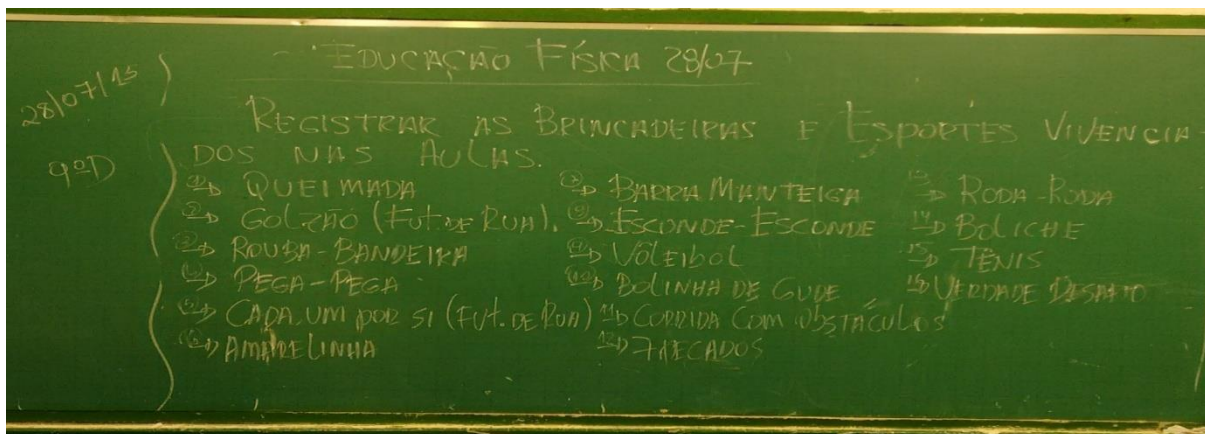 28/07/15
9ºD
- EDUCAÇÃO FÍSICA 28/07
REGISTRAR AS BRINCADEIRAS E ESPORTES VIVENCIA-
DOS NAS AULAS.
1 QUEIMADA
2 GOLZÃO (FUT. DE RUA).
3 ROUBA-BANDEIRA
4 PEGA-PEGA
5 CADA UM POR SI (FUT. DE RUA)
6 AMARELINHA
7 BARRA MANTEIGA
ESCONDE-ESCONDE
9 VÔLEIBOL
10 BOLINHA DE GUDE
11 CORRIDA COM OBSTÁCULOS
12 7 PECADOS
13 RODA-RODA
14 BOLICHE
15 TÊNIS
16 VERDADE DESAFIO